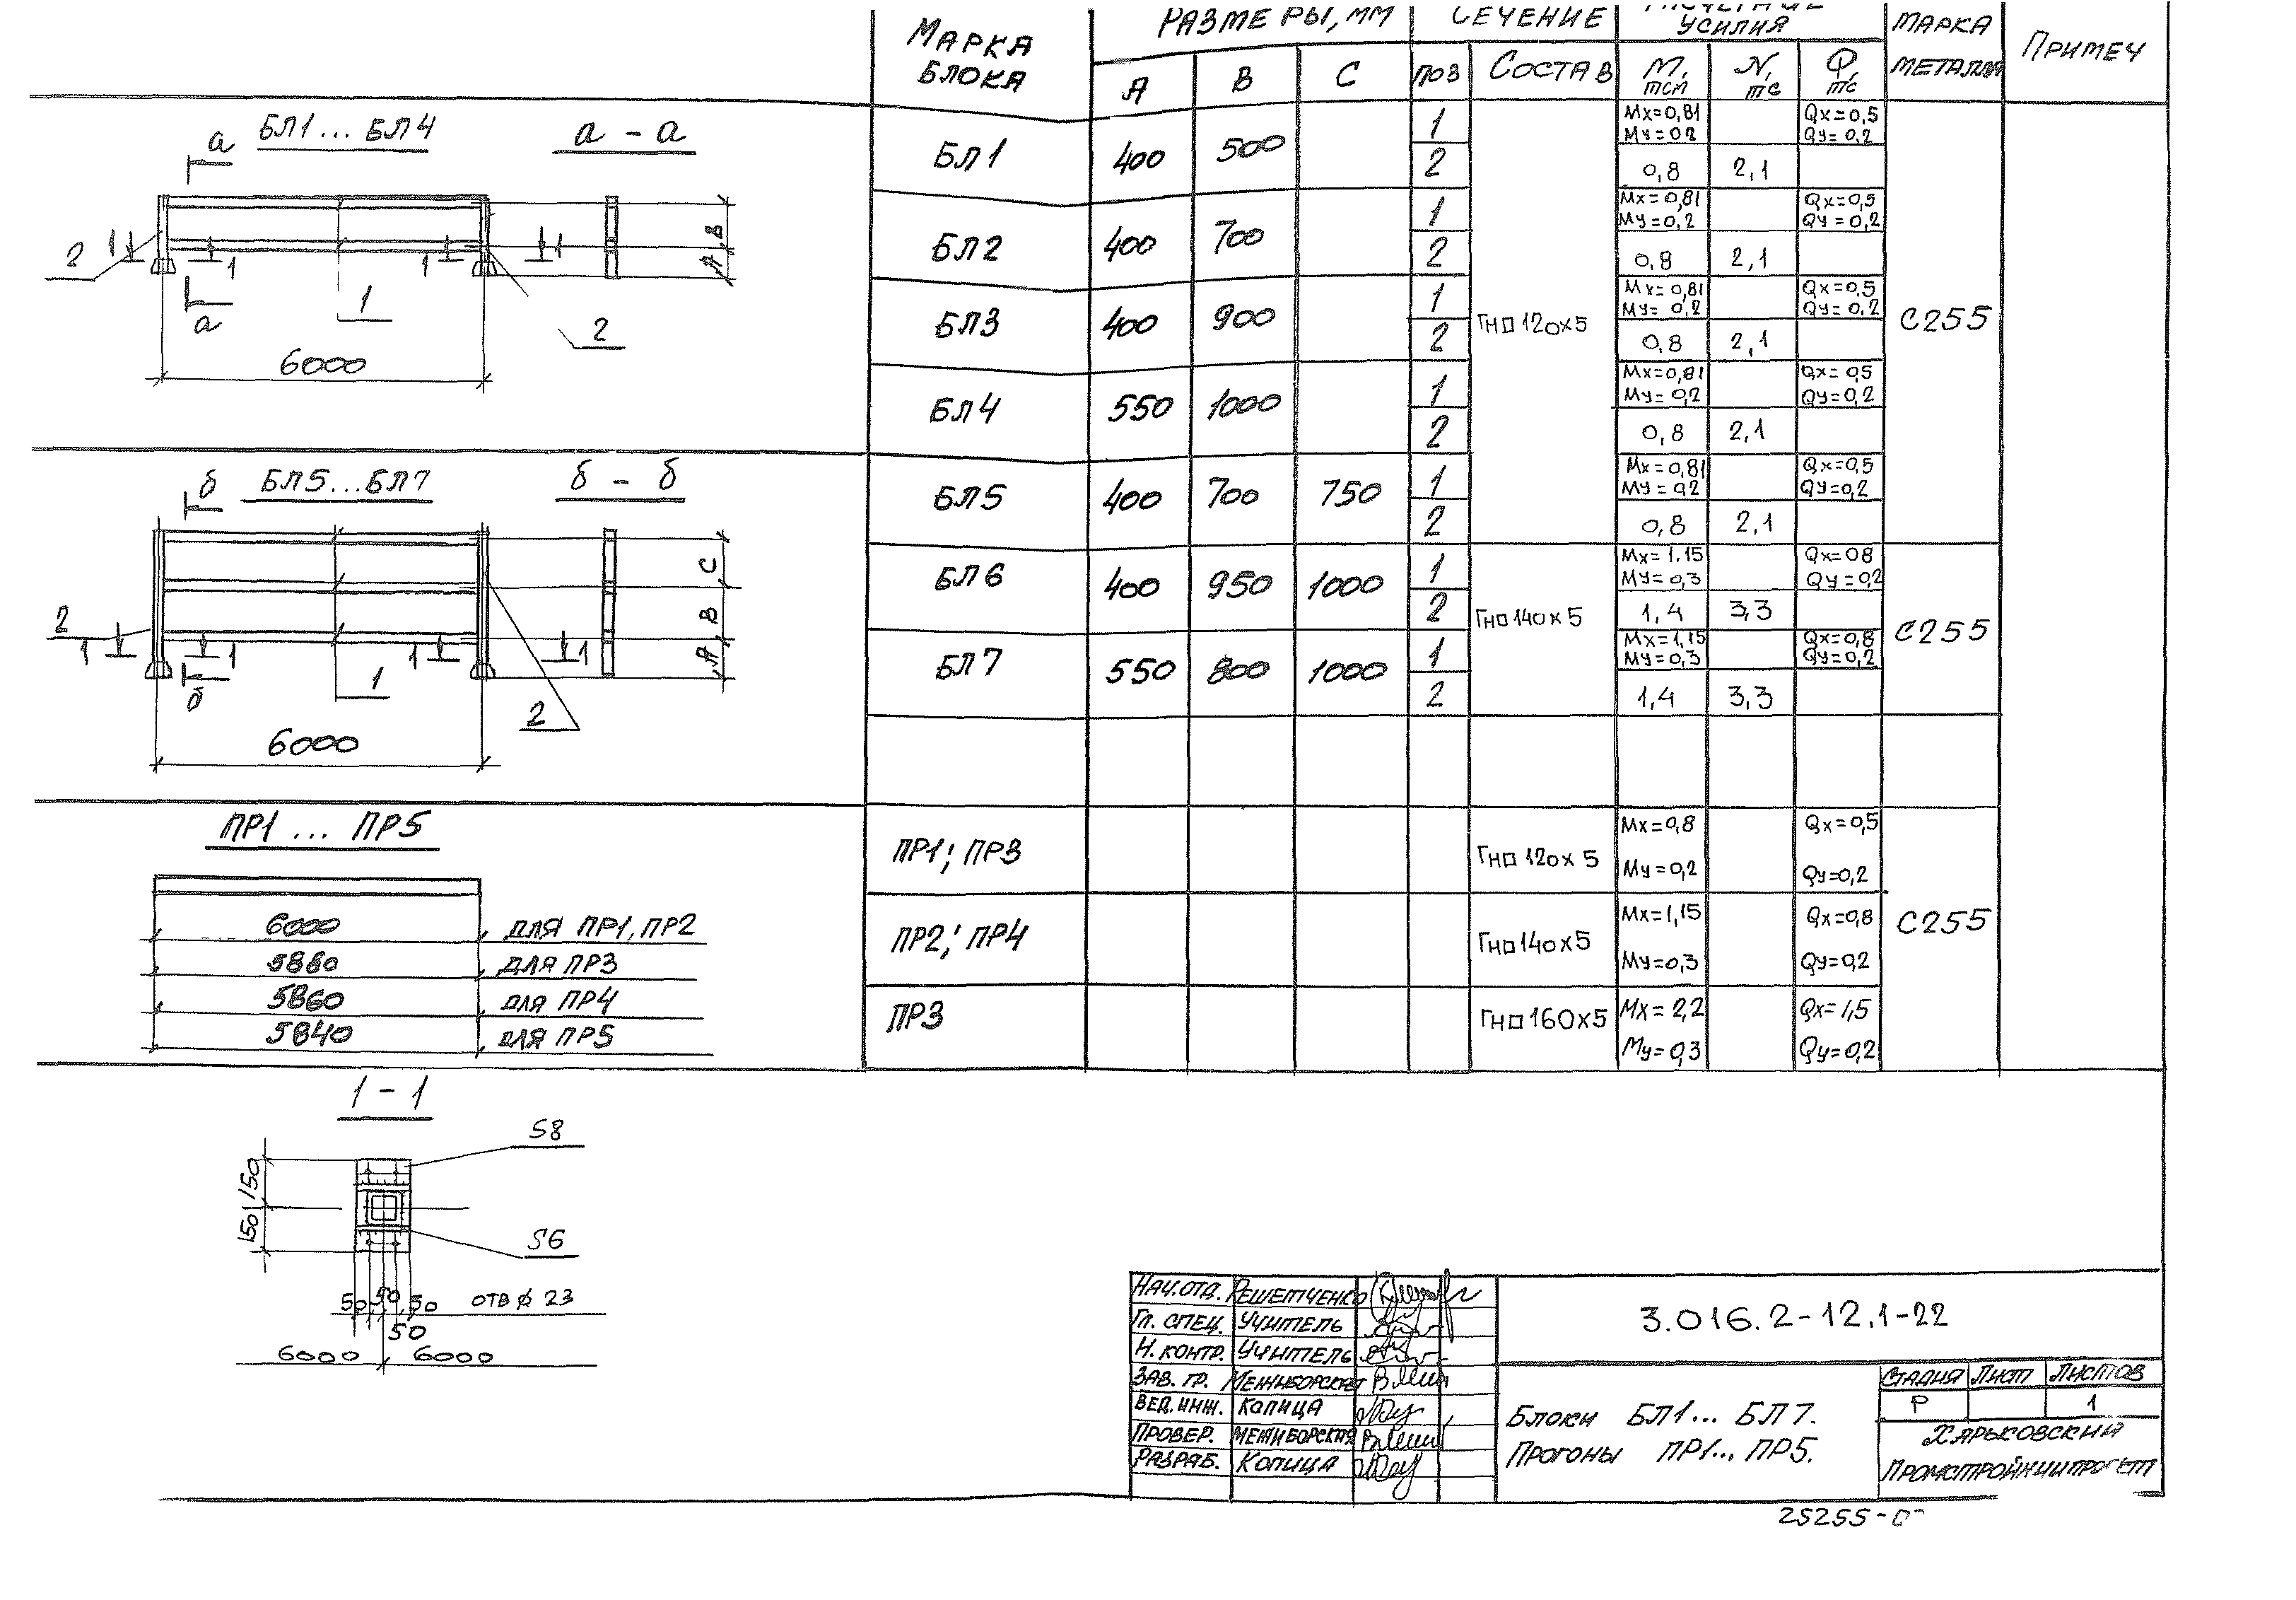 МАРКА БЛОКА
РАЗМЕРЫ, ММ
СЕЧЕНИЕ
УСИЛИЯ
МАРКА МЕТАЛЛА
ПРИМЕЧ
А В С ПОЗ СОСТАВ М, тсм N, тс Q, тс
БЛ1...БЛ4
а - а
а
а
2
1 1 1 1
1
2
6000
В
А
БЛ1 400 500
1 Mx=0,81 Qx=0,5
Mу=02 Qу=0,2
2 0,8 2,1
БЛ2 400 700
1 Mx=0,81 Qx=0,5
Mу=0,2 Qу=0,2
2 0,8 2,1
БЛ3 400 900
1 Mx=0,81 Qx=0,5
Mу=0,2 Qу=0,2
2 0,8 2,1
Гн□120х5
С255
БЛ4 550 1000
1 Mx=0,81 Qx=0,5
Mу=0,2 Qу=0,2
2 0,8 2,1
БЛ5...БЛ7
б - б
б
б
2
1 1 1 1
1
2
6000
С
В
А
БЛ5 400 700 750
1 Mx=0,81 Qx=0,5
Mу=0,2 Qу=0,2
2 0,8 2,1
БЛ6 400 950 1000
1 Mx=1.15 Qx=08
Mу=0,3 Qу=0,2
2 1,4 3,3
Гн□140х5
С255
БЛ7 550 800 1000
1 Mx=1,15 Qx=0,8
Mу=0,3 Qу=0,2
2 1,4 3,3
ПР1 ... ПР5
6000 для ПР1, ПР2
5860 для ПР3
5860 для ПР4
5840 для ПР5
ПР1; ПР3 Гн□120х5 Mx=0,8 Qx=0,5
Mу=0,2 Qу=0,2
ПР2; ПР4 Гн□140х5 Mx=1,15 Qx=0,8
Mу=0,3 Qу=0,2
С255
ПР3 Гн□160х5 Mx=2,2 Qx=1,5
Mу=0,3 Qу=0,2
1 - 1
S8
150
150
S6
50 50 50 отв ⌀ 23
50
6000 6000
НАЧ.ОТД. РЕШЕТЧЕНКО
ГЛ. СПЕЦ. УЧИТЕЛЬ
Н. КОНТР. УЧИТЕЛЬ
ЗАВ. ГР. МЕЖИБОРСКАЯ
ВЕД. ИНЖ. КОПИЦА
ПРОВЕР. МЕЖИБОРСКАЯ
РАЗРАБ. КОПИЦА
3.016.2-12.1-22
Блоки БЛ1... БЛ7.
Прогоны ПР1... ПР5.
СТАДИЯ ЛИСТ ЛИСТОВ
Р 1
ХАРЬКОВСКИЙ
ПРОМСТРОЙНИИПРОЕКТ
25255-0